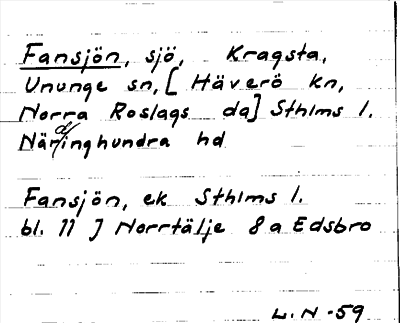 Fansjön, sjö, Kragsta,
Ununge sn, [Häverö kn,
Norra Roslags da] Sthlms l.
Närdinghundra hd
Fansjön, ek Sthlms l.
bl. 11 J Norrtälje 8a Edsbro
L.N -59